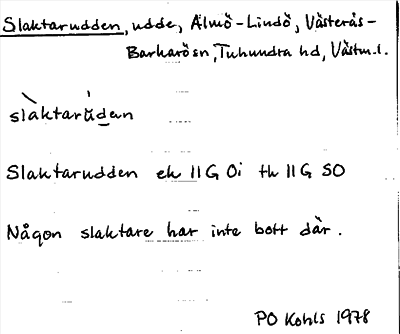 Slaktarudden, udde, Älmö-Lindö, Västerås-
Barkarö sn, Tuhundra hd, Västm.l.
slàktarŭden
Slaktarudden ek 11G 0i th 11G SO
Någon slaktare har inte bott där.
PO Kohls 1978